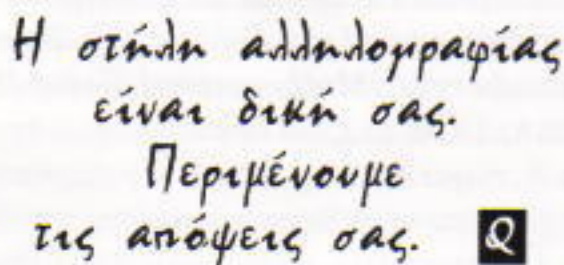 Η στήλη αλληλογραφίας
είναι δική σας.
Περιμένουμε
τις απόψεις σας. Q